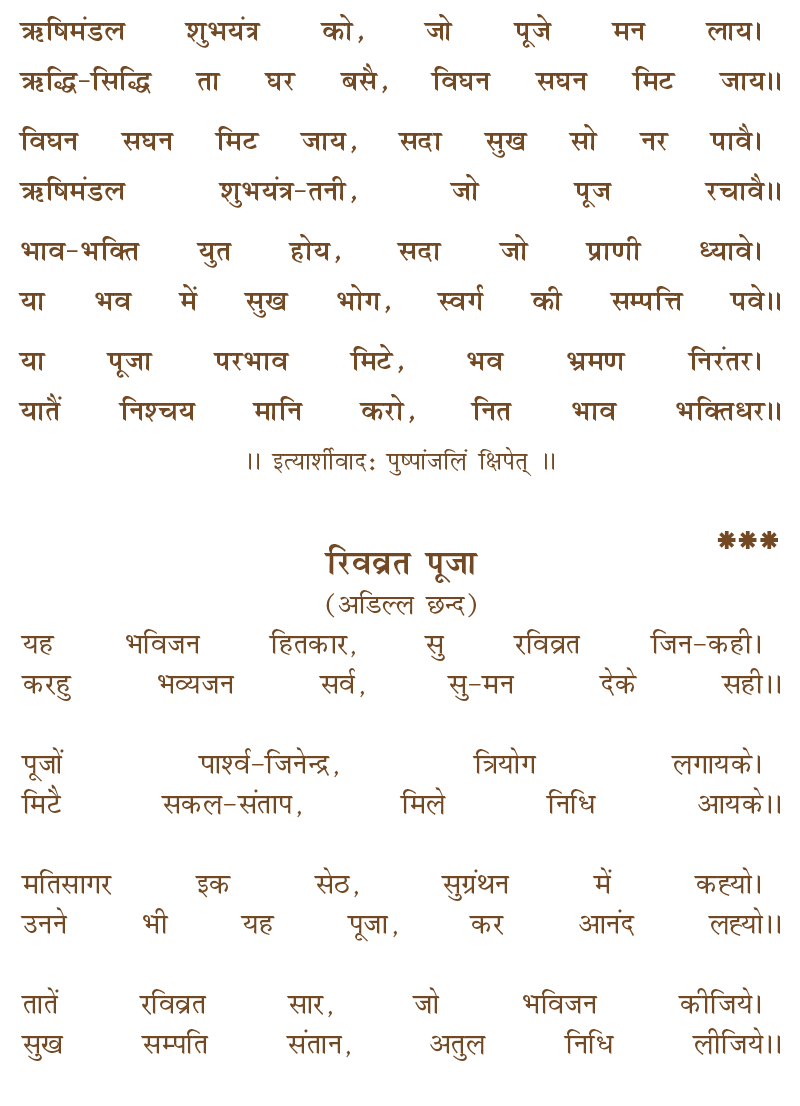 ऋषिमंडल शुभयंत्र को, जो पूजे मन लाय।
ऋद्धि-सिद्धि ता घर बसै, विघन सघन मिट जाय॥
विघन सघन मिट जाय, सदा सुख सो नर पावै।
ऋषिमंडल शुभयंत्र-तनी, जो पूज रचावै॥
भाव-भक्ति युत होय, सदा जो प्राणी ध्यावे।
या भव में सुख भोग, स्वर्ग की सम्पत्ति पवे॥
या पूजा परभाव मिटे, भव भ्रमण निरंतर।
यातैं निश्चय मानि करो, नित भाव भक्तिधर॥
॥ इत्यार्शीवादः पुष्पांजलिं क्षिपेत् ॥
***
रिवव्रत पूजा
(अडिल्ल छन्द)
यह भविजन हितकार, सु रविव्रत जिन-कही।
करहु भव्यजन सर्व, सु-मन देके सही॥
पूजों पार्श्व-जिनेन्द्र, त्रियोग लगायके।
मिटै सकल-संताप, मिले निधि आयके॥
मतिसागर इक सेठ, सुग्रंथन में कह्यो।
उनने भी यह पूजा, कर आनंद लह्यो॥
तातें रविव्रत सार, जो भविजन कीजिये।
सुख सम्पति संतान, अतुल निधि लीजिये॥